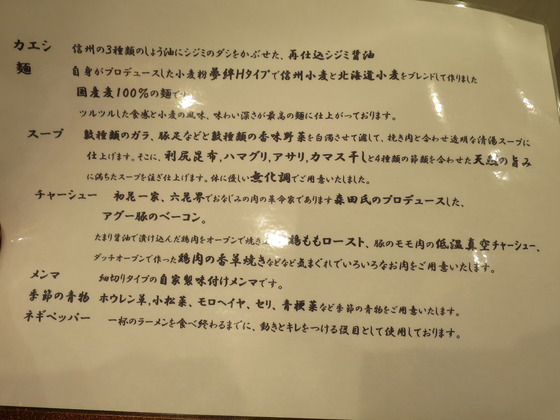 カエシ 信州の3種類のしょう油にシジミのダシをかぶせた、再仕込シジミ醤油
麺 自身がプロデュースした小麦粉夢絆Hタイプで信州小麦と北海道小麦をブレンドして作りました
国産麦100%の麺です
ツルツルした食感と小麦の風味、味わい深さが最高の麺に仕上がっております。
スープ 数種類のガラ、豚足などと数種類の香味野菜を白濁させて漉して、挽き肉と合わせ透明な清湯スープに
仕上げます。そこに、利尻昆布,ハマグリ,アサリ,カマス干しと4種類の節類を合わせた天然の旨み
に満ちたスープを注ぎ仕上げます。体に優しい無化調でご用意いたしました。
チャーシュー 初見一家、六見界でおなじみの肉の革命家であります森田氏のプロデュースした、
アグー豚のベーコン。
たまり醤油で漬け込んだ鶏肉をオーブンで焼き 鶏ももロースト、豚のモモ肉の低温真空チャーシュー、
ダッチオーブンで作った鶏肉の香草焼きなどなど気まぐれでいろいろなお肉をご用意いたします。
メンマ 細切りタイプの自家製味付けメンマです。
季節の青物 ホウレン草,小松菜、モロヘイヤ、セリ、青梗菜など季節の青物をご用意いたします。
ネギペッパー 一杯のラーメンを食べ終わるまでに、動きとキレをつける役目として使用しております。